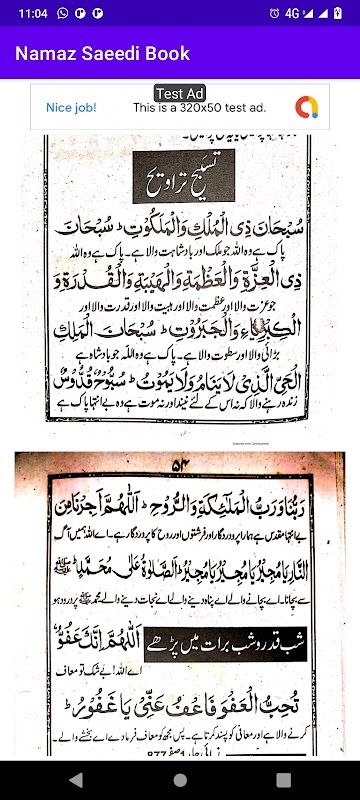 11:04
4G
Namaz Saeedi Book
Test Ad
Nice job!
This is a 320x50 test ad.
تسبیح تراویح
سُبْحَانَ ذِی الْمُلْكِ وَالْمَلَكُوْتِ ؕ سُبْحَانَ
پاک ہے وہ اللہ جو ملک اور بادشاہت والا ہے۔ پاک ہے وہ اللہ
ذِی الْعِزَّةِ وَالْعَظْمَةِ وَالْهَيْبَةِ وَالْقُدْرَةِ وَ
جو عزت والا اور عظمت والا اور ہیبت والا اور قدرت والا اور
الْكِبْرِيَآءِ وَالْجَبَرُوْتِ ؕ سُبْحَانَ الْمَلِكِ
بڑائی والا اور سطوت والا ہے۔ پاک ہے وہ اللہ جو بادشاہ ہے
الْحَیِّ الَّذِیْ لَا يَنَامُ وَلَا يَمُوْتُ ؕ سُبُّوْحٌ قُدُّوْسٌ
زندہ رہنے والا کہ نہ اس کے لئے نیند اور نہ موت ہے وہ بے انتہا پاک ہے
Scanned with CamScanner
۵۴
رَبُّنَا وَرَبُّ الْمَلٰٓئِكَةِ وَالرُّوْحِ ؕ اَللّٰهُمَّ اَجِرْنَا مِنَ
بے انتہا مقدس ہے ہمارا پروردگار اور فرشتوں اور روح کا پروردگار ہے۔ اے اللہ ہمیں آگ
النَّارِ يَا مُجِيْرُ يَا مُجِيْرُ يَا مُجِيْرُ ؕ اَلصَّلٰوةُ عَلٰى مُحَمَّدٍ ؕ ﷺ
سے بچانا۔ اے بچانے والے اے پناہ دینے والے اے نجات دینے والے محمد ﷺ پر درود ہو
شب قدر و شب برات میں پڑھے اَللّٰهُمَّ اِنَّكَ عَفُوٌّ
اے اللہ! بے شک تو معاف
تُحِبُّ الْعَفْوَ فَاعْفُ عَنِّیْ يَا غَفُوْرُ ؕ
کرنے والا ہے اور معافی کو پسند کرتا ہے۔ پس مجھ کو معاف فرما دے اے بخشنے والے۔